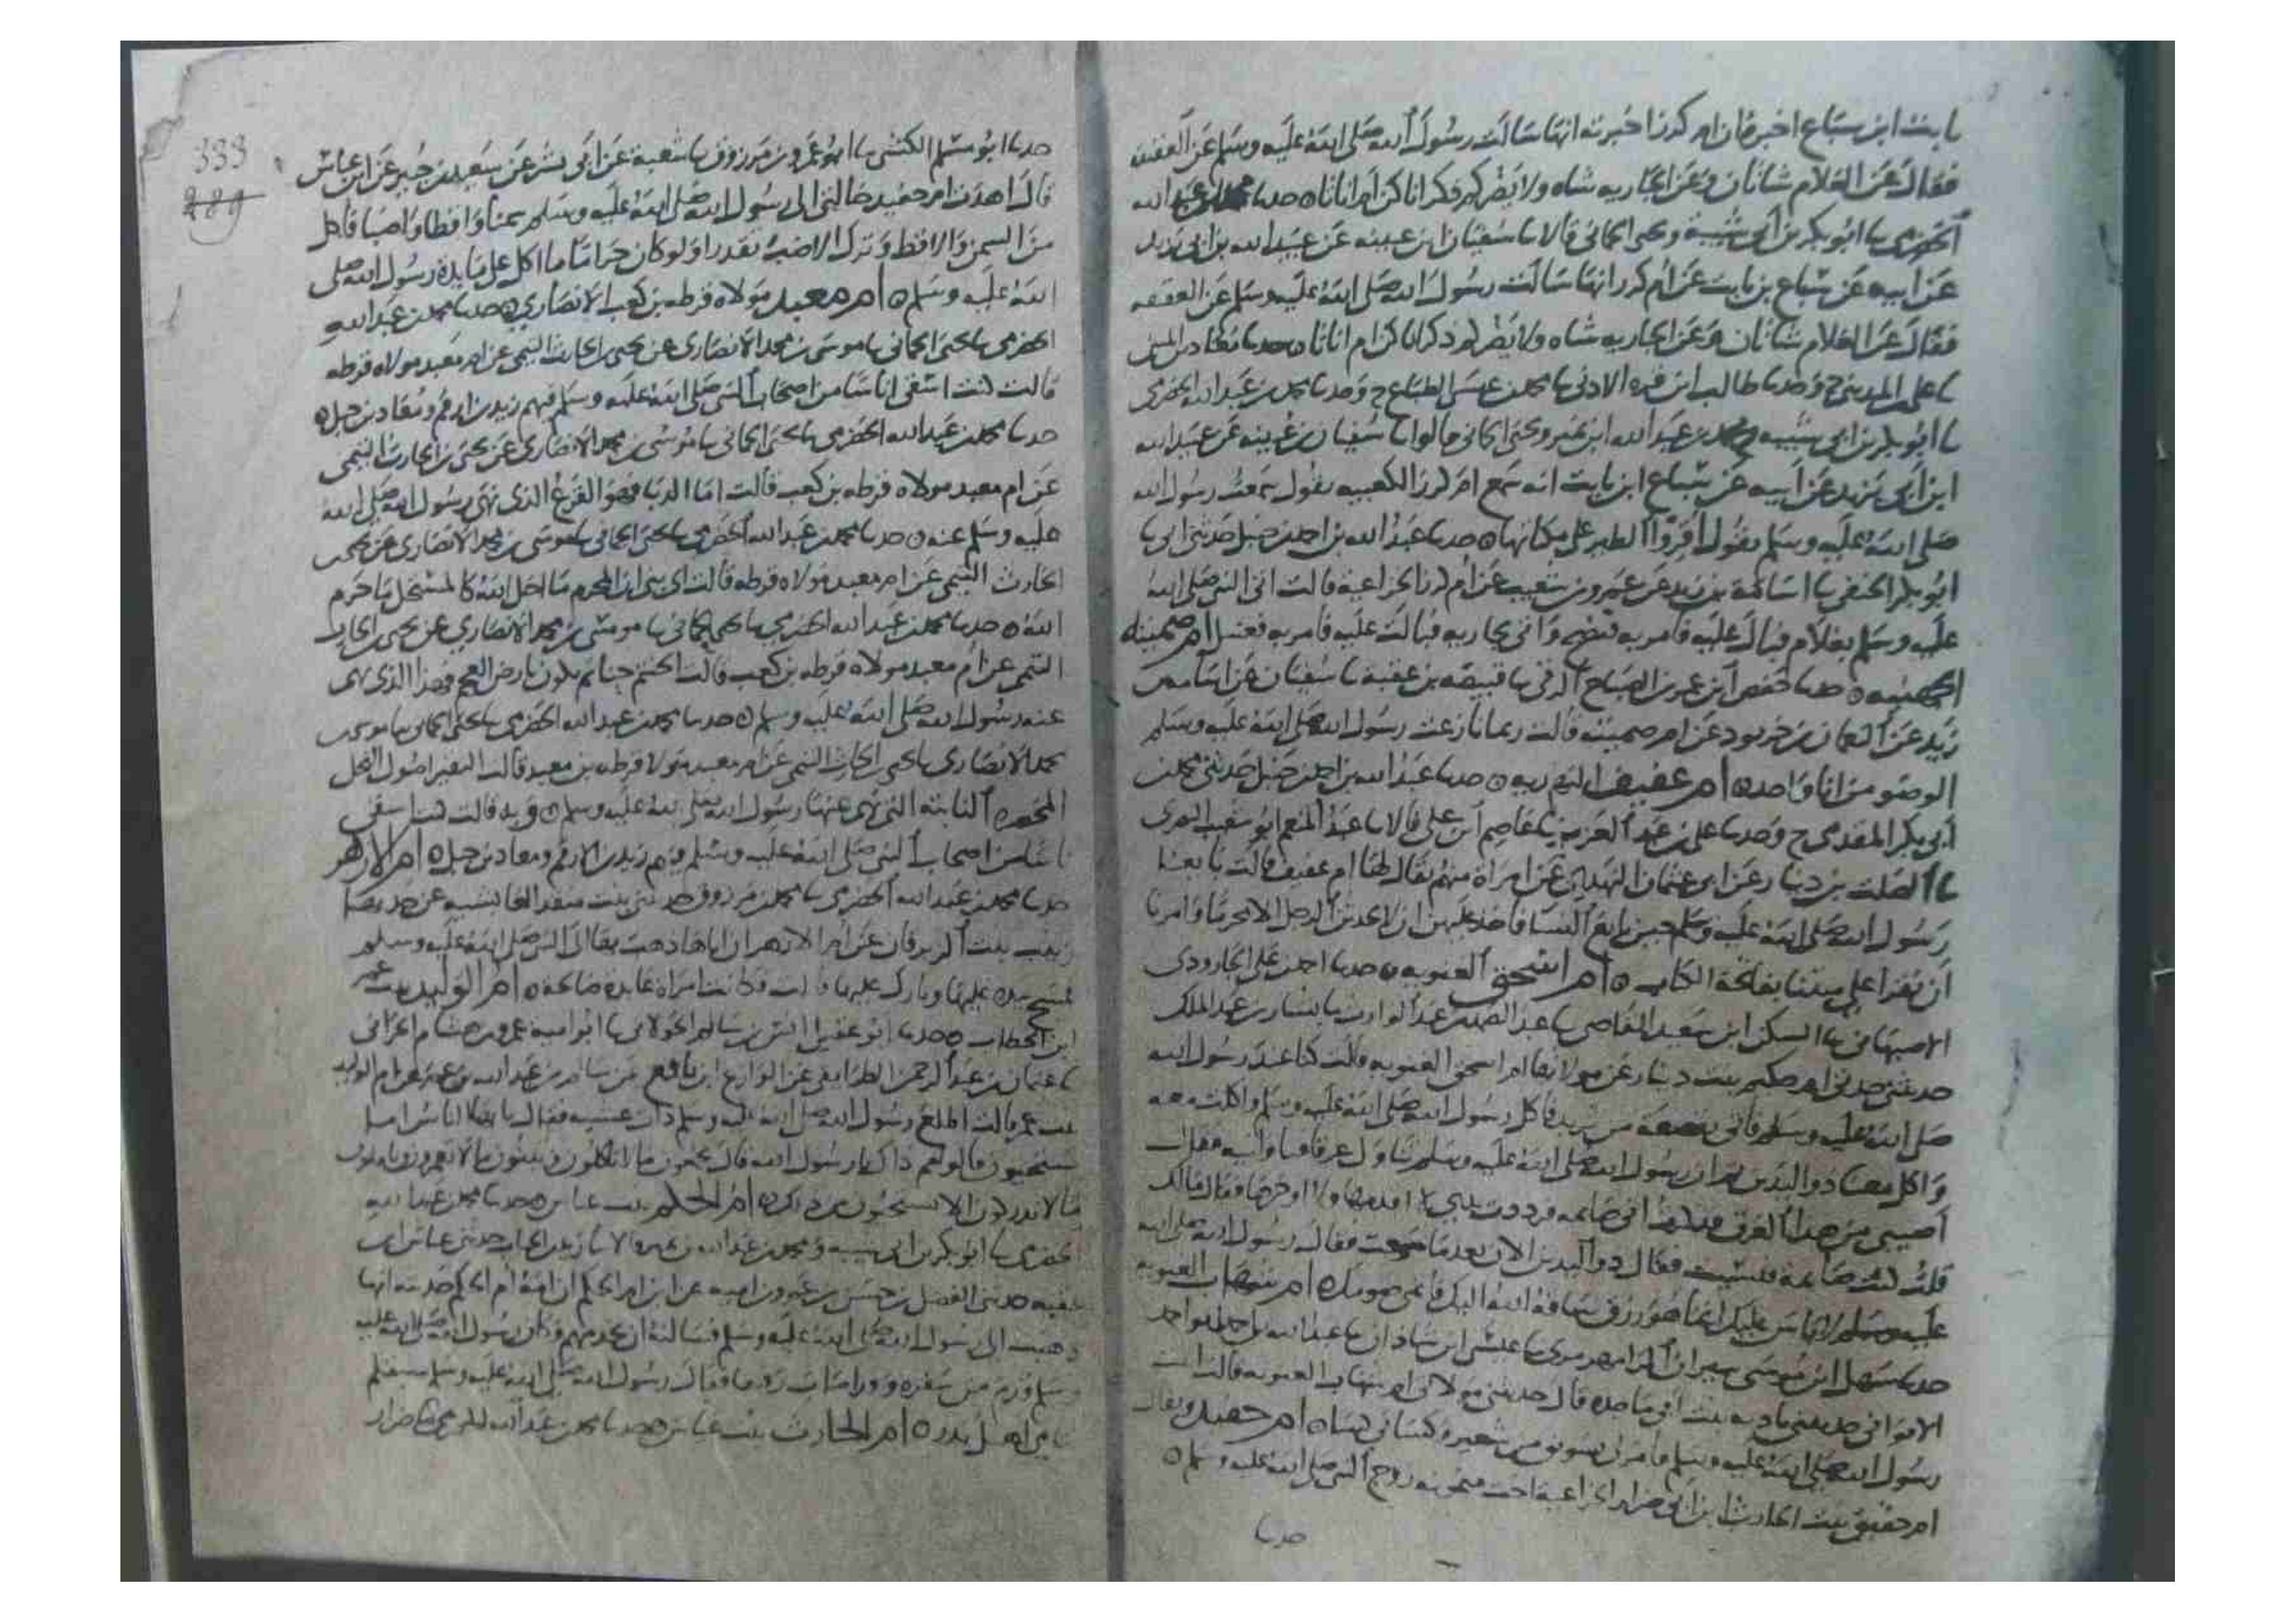 ابنت ابن سباع اخبره ان ام كرز اخبرته انها سالت رسول الله صلى الله عليه وسلم عن العقيقة
فقال عن الغلام شاتان وعن الجاريه شاه ولا يضركم ذكرانا كن ام اناثا ه حدثنا محمد بن عبد الله
الحضرمي نا ابو بكر بن ابي شيبة ويحيى الحماني قالا نا سفيان ابن عيينه عن عبيد الله بن ابي يزيد
عن ابيه عن سباع بن ثابت عن ام كرز انها سالت رسول الله صلى الله عليه وسلم عن العقيقه
فقال عن الغلام شاتان وعن الجاريه شاه ولا يضركم ذكرانا كن ام اناثا ه حدثنا معاذ بن المثنى
نا علي بن المديني ح وحدثنا طالب ابن قره الادني نا محمد بن عيسى الطباع ح وحدثنا محمد بن عبد الله الحضرمي
نا ابو بكر بن ابي شيبه ومحمد بن عبد الله ابن نمير ويحيى الحماني قالوا نا سفيان بن عيينه عن عبيد الله
ابن ابي يزيد عن ابيه عن سباع ابن ثابت انه سمع ام كرز الكعبيه تقول سمعت رسول الله
صلى الله عليه وسلم يقول اقروا الطير على مكاناتها ه حدثنا عبد الله بن احمد بن حنبل حدثني ابي نا
ابو بكر الحنفي نا اسامة بن زيد عن عمرو بن شعيب عن ام كرز الخزاعية قالت اتى النبي صلى الله
عليه وسلم بغلام فبال عليه فامر به فنضح واتى بجاريه فبالت عليه فامر به فغسل ام صبيه
الجهنيه ه حدثنا حفص ابن عمر بن الصباح الرقي نا قبيصه بن عقبة نا سفيان عن اسامه بن
زيد عن النعمان بن خربوذ عن ام صبيه قالت ربما نازعت رسول الله صلى الله عليه وسلم
الوضو من انا واحد ه ام عفيف النهديه ه حدثنا عبد الله بن احمد بن حنبل حدثني محمد بن
ابي بكر المقدمي ح وحدثنا علي بن عبد العزيز نا عاصم ابن علي قالا نا عبد المنعم ابو سعيد
نا الصلت بن دينار عن ابي عثمان النهدي عن امراة منهم يقال لها ام عفيف قالت بايعنا
رسول الله صلى الله عليه وسلم حين بايع النسا فاخذ عليهن ان لا تحدثن الرجل الا محرما وامرنا
ان نقرا على ميتنا بفاتحة الكتاب ه ام اسحق الغنويه ه حدثنا احمد بن علي الجارودي
الاصبهاني نا السكن ابن سعيد القاضي نا عبد الصمد بن عبد الوارث نا بشار بن عبد الملك
حدثتني جدتي ام حكيم بنت دينار عن مولاتها ام اسحق الغنويه قالت كنا عند رسول الله
صلى الله عليه وسلم فاتي بقصعة من ثريد فاكل رسول الله صلى الله عليه وسلم واكلت معه
واكل معنا ذو اليدين ثم ان رسول الله صلى الله عليه وسلم ناول عرقا فقال
اصيبي من هذا العرق فذكرت اني صايمه فرددت يدي لا اقدمها ولا اوخرها فقال مالك
قلت كنت صايمه فنسيت فقال ذو اليدين الان بعد ما شبعت فقال رسول الله صلى الله
عليه وسلم لا باس عليك انما هو رزق ساقه الله اليك فاتمي صومك ه ام
حدثنا سهل ابن موسى شيران الرامهرمزي نا عيسى ابن شاذان نا عبد الله بن
حدثتني قال حدثتني مولاتي ام العنويه قالت اتيت
رسول الله صلى الله عليه وسلم فامر لي من شعير وكساني كساه ه ام حفيد ويقال
ام حفيق بنت الحارث ابن ابي ضرار الخزاعية اخت ميمونه زوج النبي صلى الله عليه وسلم ه
حدثنا
333
289
حدثنا ابو مسلم الكشي نا عمرو بن مرزوق نا شعبة عن ابي بشر عن سعيد بن جبير عن ابن عباس
قال اهدت ام حفيد خالتي الى رسول الله صلى الله عليه وسلم سمنا واقطا واضبا فاكل
من السمن والاقط وترك الاضب تقذرا ولو كان حراما ما اكل على مايدة رسول الله صلى
الله عليه وسلم ه ام معبد مولاه قرظه بن كعب الانصاري ه حدثنا محمد بن عبد الله
الحضرمي نا يحيى الحماني نا موسى بن محمد الانصاري عن يحيى بن الحارث التيمي عن ام معبد مولاه قرظه
قالت كنت اسقي اناسا من اصحاب النبي صلى الله عليه وسلم فيهم زيد بن ارقم ومعاذ بن جبل ه
حدثنا محمد بن عبد الله الحضرمي نا يحيى الحماني نا موسى بن محمد الانصاري عن يحيى بن الحارث التيمي
عن ام معبد مولاه قرظه بن كعب قالت اما الدبا فهو القرع الذي نهى رسول الله صلى الله
عليه وسلم عنه ه حدثنا محمد بن عبد الله الحضرمي نا يحيى الحماني نا موسى بن محمد الانصاري عن يحيى بن
الحارث التيمي عن ام معبد مولاه قرظه قالت اي بني ان المحرم ما احل الله كالمستحل ما حرم
الله ه حدثنا محمد بن عبد الله الحضرمي نا يحيى الحماني نا موسى بن محمد الانصاري عن يحيى بن الحارث
التيمي عن ام معبد مولاه قرظه بن كعب قالت الحنتم حناتم تكون بارض العجم فهذا الذي نهى
عنه رسول الله صلى الله عليه وسلم ه حدثنا محمد بن عبد الله الحضرمي نا يحيى الحماني نا موسى بن
محمد الانصاري نا يحيى بن الحارث التيمي عن ام معبد مولاه قرظه بن معبد قالت النقير اصول النخل
المخضره النابته التي نهى عنها رسول الله صلى الله عليه وسلم ه وبه قالت كنت اسقي
ناسا من اصحاب النبي صلى الله عليه وسلم فيهم زيد بن الارقم ومعاذ بن جبل ه ام الازهر
حدثنا محمد بن عبد الله الحضرمي نا محمد بن مرزوق حدثتني بنت منقذ العايشيه عن جدتها
زينب بنت الزبرقان عن ام الازهر ان اباها ذهب بها الى النبي صلى الله عليه وسلم
فمسح يده عليها وبارك عليها وكانت امراة عابده صالحه ه ام الوليد بنت عمر
ابن الخطاب ه حدثنا ابو عقيل انس بن سالم الخولاني نا ابو اميه عمرو بن هشام الحراني
نا عثمان بن عبد الرحمن الطرايفي عن الوازع ابن نافع عن سالم بن عبد الله بن عمر عن ام الوليد
بنت عمر قالت اطلع رسول الله صلى الله عليه وسلم ذات عشيه فقال يا ايها الناس اما
تستحيون قالوا مم ذاك يا رسول الله قال تجمعون ما لا تاكلون وتبنون ما لا تعمرون وتاملون
ما لا تدركون الا تستحيون من ذلك ه ام الحكم بنت ه حدثنا محمد بن عبد الله
الحضرمي نا ابو بكر بن ابي شيبه ومحمد بن عبد الله بن نمير قالا نا زيد بن الحباب حدثني عياش ابن
عقبه حدثني الفضل بن حسن بن عمرو بن اميه عن ابن ام الحكم ان امه ام الحكم حدثته انها
ذهبت الى رسول الله صلى الله عليه وسلم فسالته ان يخدمهم وكان رسول الله صلى الله عليه
وسلم قدم من سفره فقال رسول الله صلى الله عليه وسلم سبقكم
يتامى اهل بدر ه ام الحارث بنت ه حدثنا محمد بن عبد الله الحضرمي نا ضرار